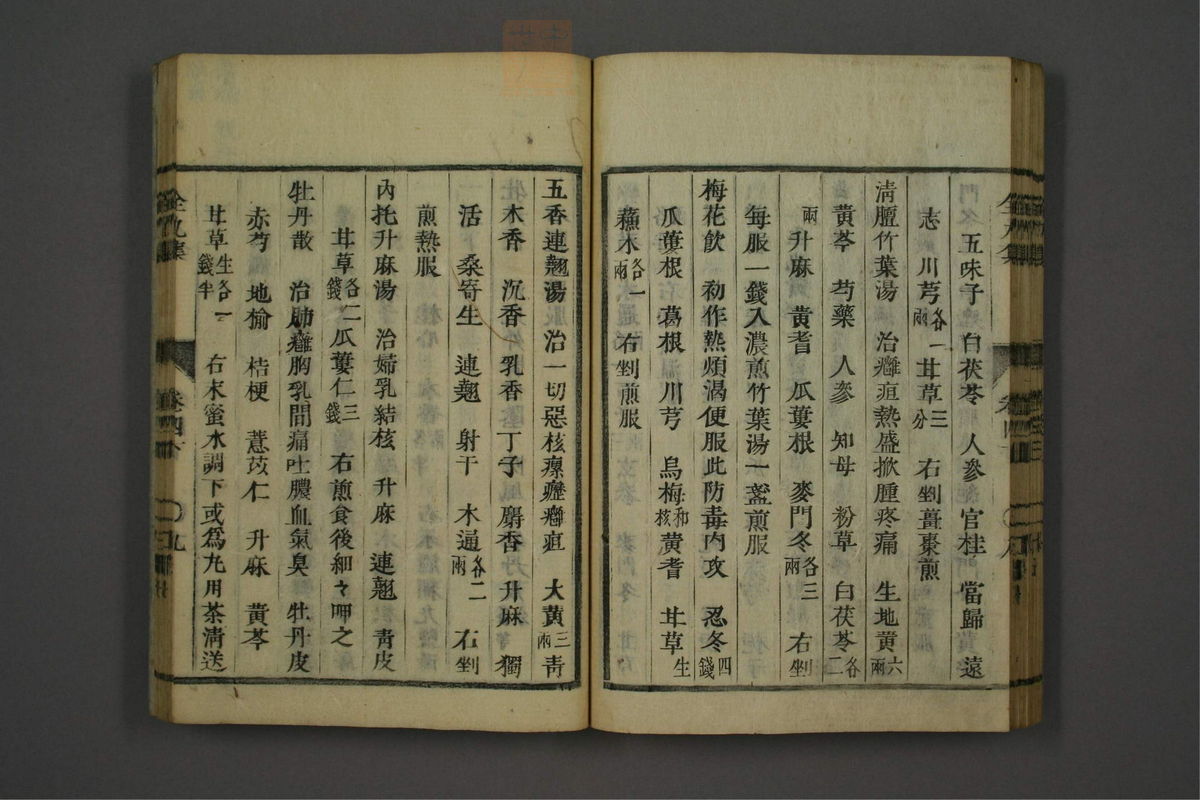 五味子 白茯苓 人參 官桂 當歸 遠
志 川芎各一兩 甘草三分 右剉薑棗煎
淸膻竹葉湯 治癰疽熱盛掀腫疼痛 生地黃六兩
黃芩 芍藥 人參 知母 粉草 白茯苓各二
兩 升麻 黃耆 瓜蔞根 麥門冬各三兩 右剉
每服一錢入濃煎竹葉湯一盞煎服
梅花飲 初作熱煩渴便服此防毒內攻 忍冬四錢
瓜蔞根 葛根 川芎 烏梅和核 黃耆 甘草生
蘇木各一兩 右剉煎服
五香連翹湯 治一切惡核瘰癧癰疽 大黃三兩 靑
木香 沉香 乳香 丁子 麝香 升麻 獨
活 桑寄生 連翹 射干 木通各二兩 右剉
煎熱服
內托升麻湯 治婦乳結核 升麻 連翹 靑皮
甘草各二錢 瓜蔞仁三錢 右煎食後細々呷之
牡丹散 治肺癰胸乳間痛吐膿血氣臭 牡丹皮
赤芍 地榆 桔梗 薏苡仁 升麻 黃芩
甘草生各一錢半 右末蜜水調下或爲丸用茶淸送
全九集
卷四下
九